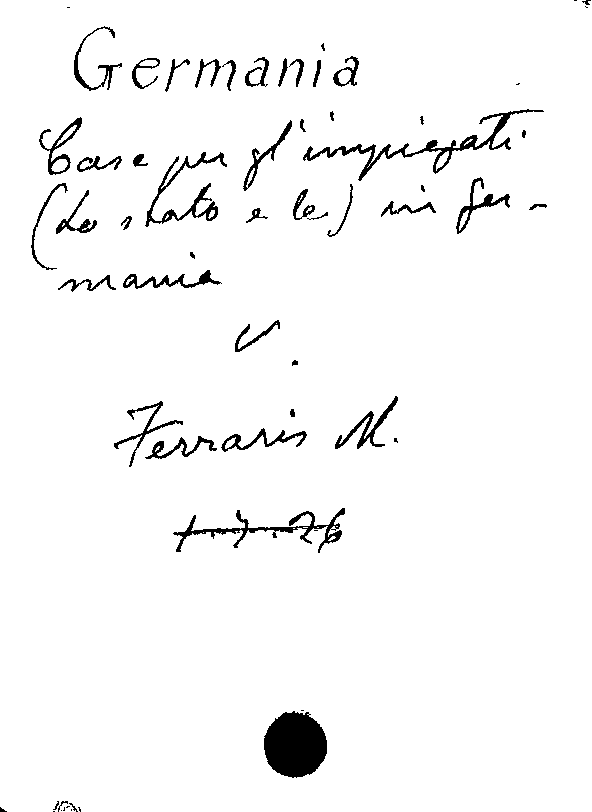 Germania
Case per gl'impiegati
(Lo stato e le) in Ger-
mania
V.
Ferraris M.
1.7.26